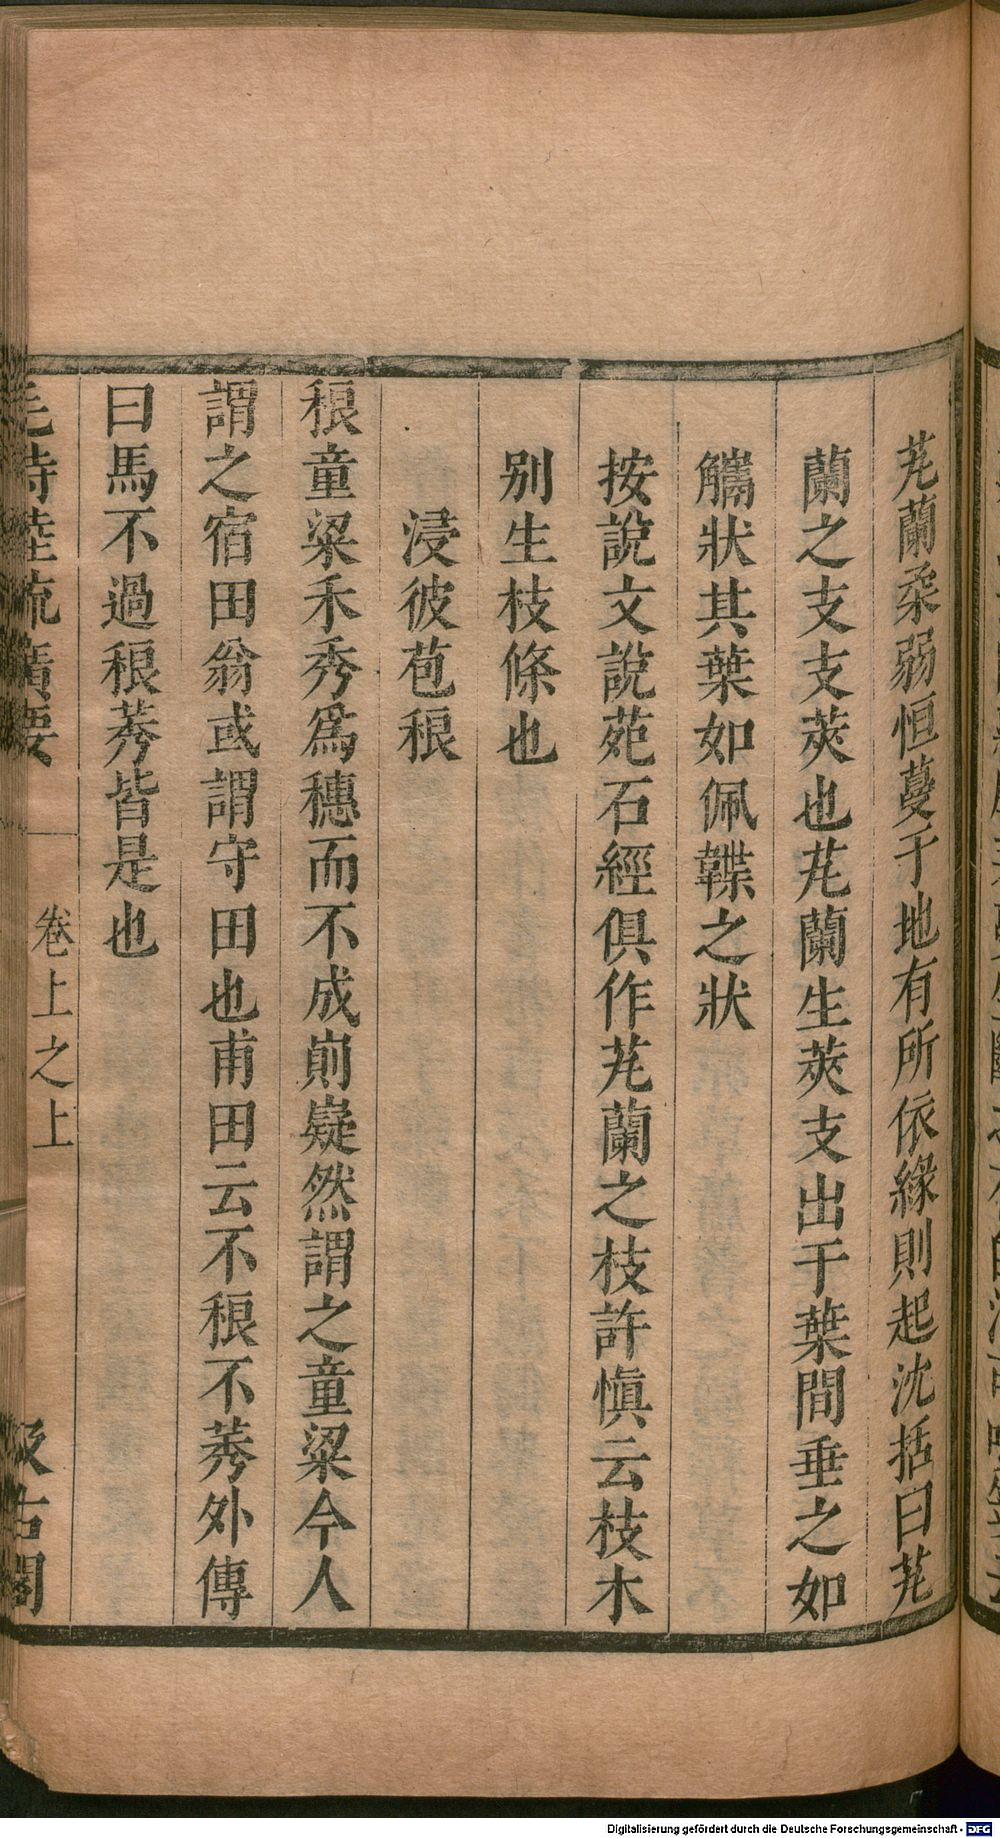 芄蘭柔弱恒蔓于地有所依緣則起沈括曰芄
蘭之支支莢也芄蘭生莢支出于葉間垂之如
觿狀其葉如佩韘之狀
按說文說苑石經俱作芄蘭之枝許慎云枝木
别生枝條也
浸彼苞稂
稂童粱禾秀爲穗而不成崱嶷然謂之童粱今人
謂之宿田翁或謂守田也甫田云不稂不莠外傳
曰馬不過稂莠皆是也
毛詩陸疏廣要
卷上之上
汲古閣
Digitalisierung gefördert durch die Deutsche Forschungsgemeinschaft - DFG